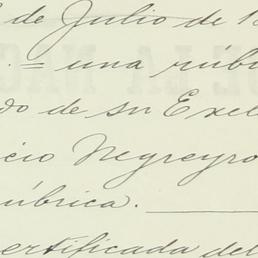 de Julio de 1
.= una rúb
do de su Exel
cio Negreyro
úbrica.
ertificada del